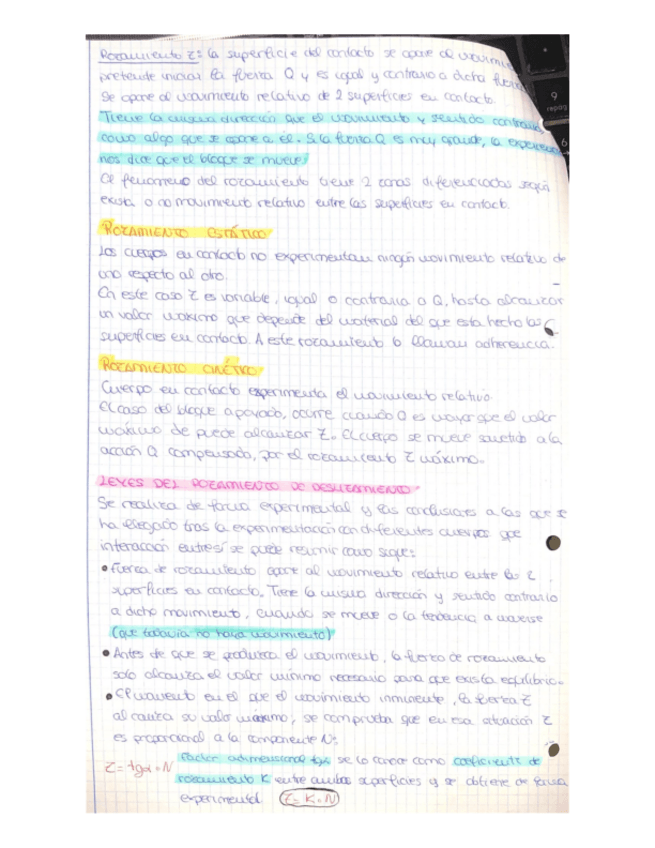 Rozamiento Z: la superficie del contacto se opone al movimie
pretende iniciar la fuerza Q y es igual y contrario a dicha fuerza
Se opone al movimiento relativo de 2 superficies en contacto.
Tiene la misma dirección que el movimiento y sentido contrario
como algo que se opone a él. Si la fuerza Q es muy grande, la experiencia
nos dice que el bloque se mueve
El fenómeno del rozamiento tiene 2 zonas diferenciadas según
exista o no movimiento relativo entre las superficies en contacto.
ROZAMIENTO ESTÁTICO
Los cuerpos en contacto no experimentan ningún movimiento relativo de
uno respecto al otro.
En este caso Z es variable, igual o contraria a Q, hasta alcanzar
un valor máximo que depende del material del que esta hecho las
superficies en contacto. A este rozamiento lo llaman adherencia.
ROZAMIENTO CINÉTICO
Cuerpo en contacto experimenta el movimiento relativo.
El caso del bloque apoyado, ocurre cuando Q es mayor que el valor
máximo de puede alcanzar Z. El cuerpo se mueve sometido a la
acción Q compensado, por el rozamiento Z máximo.
LEYES DEL ROZAMIENTO DE DESLIZAMIENTO
Se realiza de forma experimental y las conclusiones a las que se
ha llegado tras la experimentación con diferentes cuerpos que
interacción entre sí se puede resumir como sigue:
• Fuerza de rozamiento opone al movimiento relativo entre las 2
superficies en contacto. Tiene la misma dirección y sentido contrario
a dicho movimiento, cuando se mueve o la tendencia a moverse
(que todavía no haya movimiento)
• Antes de que se produzca el movimiento, la fuerza de rozamiento
solo alcanza el valor mínimo necesario para que exista equilibrio.
• El momento en el que el movimiento inminente, la fuerza Z
alcanza su valor máximo, se comprueba que en esa situación Z
es proporcional a la componente N:
Z = tgα · N
Factor adimensional tgα se lo conoce como coeficiente de
rozamiento K entre ambas superficies y se obtiene de forma
experimental Z = K · N
9
repag
6